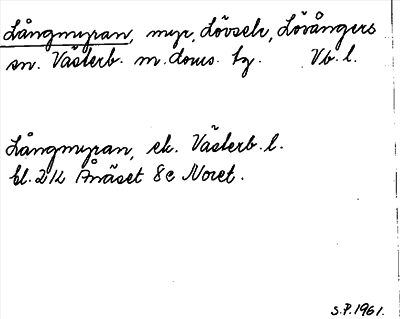 Långmyran, myr, Lövsele, Lövångers
sn. Västerb. m. doms. tg. Vb. l.
Långmyran, ek. Västerb. l.
bl. 21k Ånäset 8c Noret.
S.P. 1961.